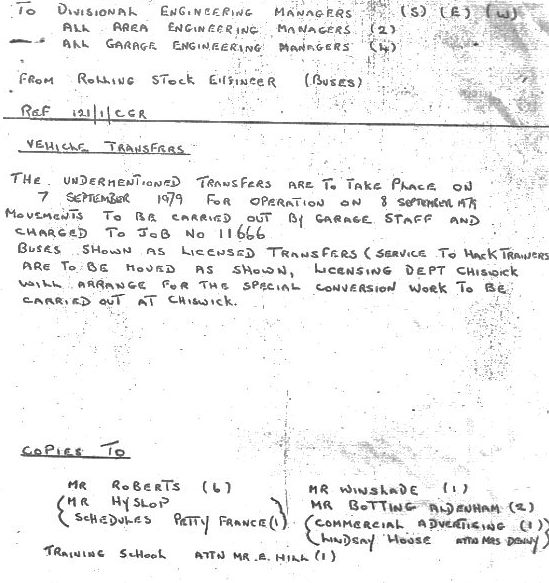 TO DIVISIONAL ENGINEERING MANAGERS (S) (E) (W)
ALL AREA ENGINEERING MANAGERS (2)
ALL GARAGE ENGINEERING MANAGERS (4)
FROM ROLLING STOCK ENGINEER (BUSES)
REF 121/1/CGR
VEHICLE TRANSFERS
THE UNDERMENTIONED TRANSFERS ARE TO TAKE PLACE ON
7 SEPTEMBER 1979 FOR OPERATION ON 8 SEPTEMBER 1979
MOVEMENTS TO BE CARRIED OUT BY GARAGE STAFF AND
CHARGED TO JOB NO 11666
BUSES SHOWN AS LICENSED TRANSFERS (SERVICE TO HACK TRAINERS
ARE TO BE MOVED AS SHOWN, LICENSING DEPT CHISWICK
WILL ARRANGE FOR THE SPECIAL CONVERSION WORK TO BE
CARRIED OUT AT CHISWICK.
COPIES TO
MR ROBERTS (6) MR WINSLADE (1)
(MR HYSLOP ) MR BOTTING ALDENHAM (2)
(SCHEDULES PETTY FRANCE (1) (COMMERCIAL ADVERTISING (1))
(LINDSAY HOUSE ATTN MRS DENNY)
TRAINING SCHOOL ATTN MR. E. HILL (1)